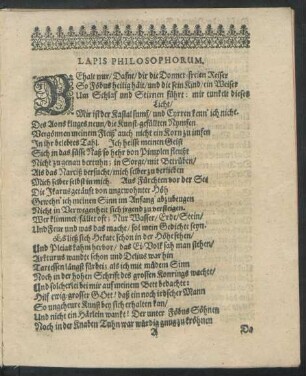 LAPIS PHILOSOPHORUM.
BEhalt nur / Dafne / die die Donner-freien Reiser
So Föbus heilig hält / und die sein Kind / ein Weiser
Um Schlaf und Stirnen führt: mir tunkelt dieses
Licht /
Mir ist der Kastal stum / und Cyrren kenn' ich nicht.
Des Aons kluges neun / die Kunst-gesäugten Nymfen
Vergönnen meinem Fleiß' auch nicht ein Korn zu impfen
In ihr belobtes Tahl. Ich heisse meinen Geist
Sich in das süsse Naß so hehr von Pimplen fleußt
Nicht zu genau bemühn; in Sorge / mit Betrüben /
Als das Narciß versucht / mich selber zu verlieben
Mich selber selbst in mich. Aus Fürchten vor der See
Die Ikarus geräuft von ungewohnter Höh
Gewehn' ich meinen Sinn im Anfang' abzubeugen
Nicht in Verwegenheit sich irgend zu versteigen.
Wer klimmet / fället oft: Nur Wasser / Erde / Stein /
Und Feur und was das macht / sol mein Gedichte seyn.
Es ließ sich Hekate schon in der Höhe sehen /
Und Pleias kahm hervor / das Ei-Volk sah man stehen /
Arkturus wandte schon und Delius war hin
Tartessen längst fürbei: als ich mit müdem Sinn
Noch in der hohen Schrifft des grossen Kornrings wachte /
Und solcherlei bei mir auf meinem Bett bedachte:
Hilf ewig-grosser GOtt / daß ein noch irdscher Mann
So ungeheure Kunst bey sich erhalten kan /
Und nicht ein Härlein wankt! Der unter Föbus Söhnen
Noch in der Knaben Tuhn war würdig gnug zu kröhnen
A
De